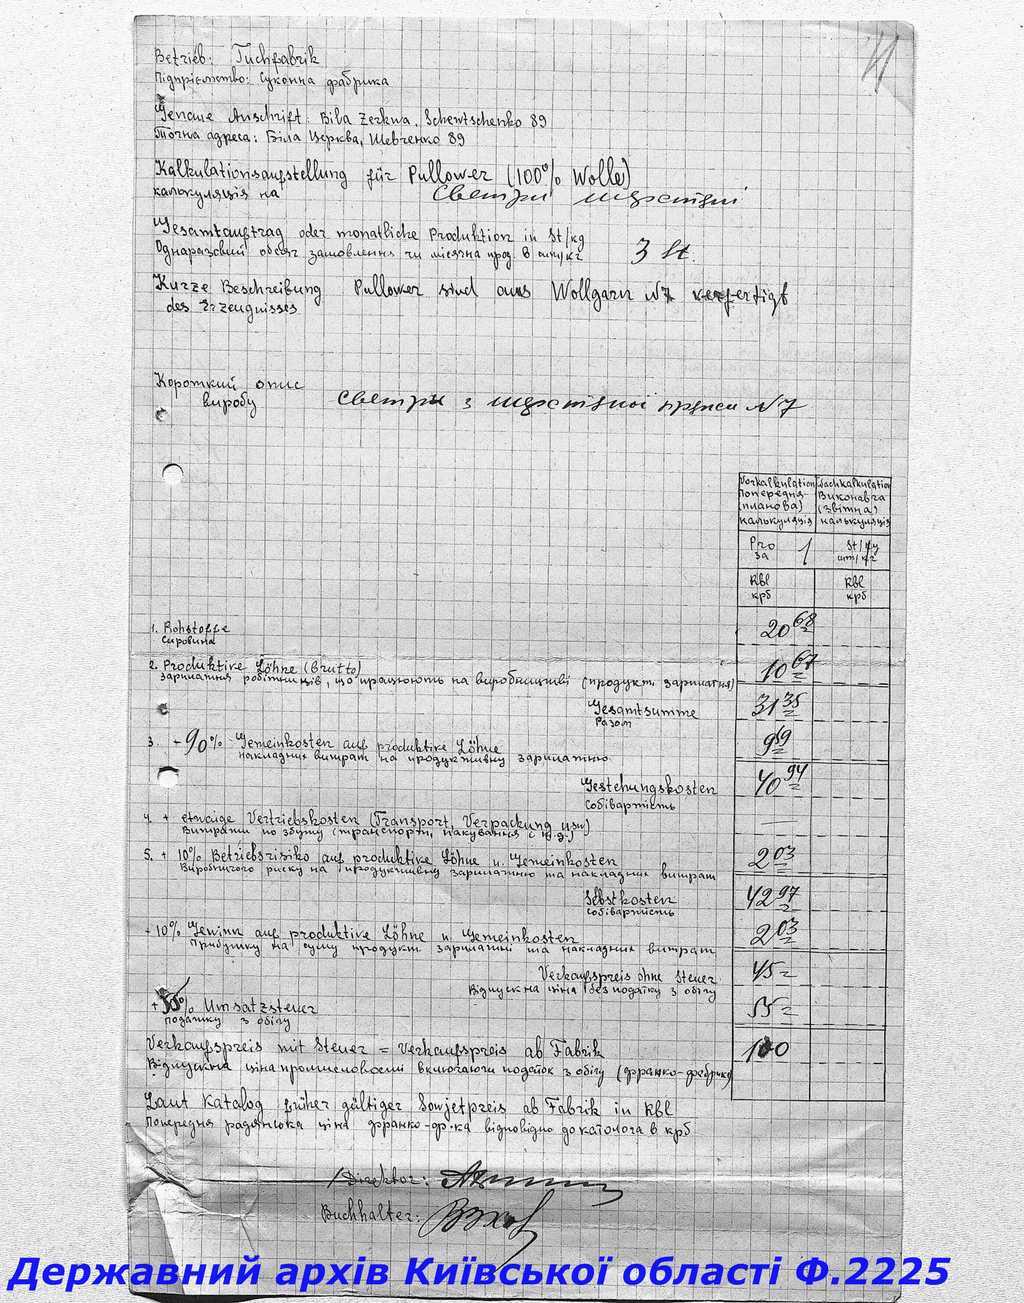 Betrieb: Tuchfabrik
Підприємство: Суконна фабрика
Genaue Anschrift: Bila Zerkwa. Schewtschenko 89
Точна адреса: Біла Церква, Шевченко 89
Kalkulationsaufstellung für Pullower (100% Wolle)
калькуляція на Светри шерстяні
Gesamtauftrag oder monatliche Produktion in St/kg
Одноразовий обсяг замовлення чи місячна прод. в шт/кг 3 St.
Kurze Beschreibung Pullower sind aus Wollgarn N7 verfertigt
des Erzeugnisses
Короткий опис
виробу Светри з шерстяної пряжи N7
Vorkalkulation Nachkalkulation
Попередня Виконавча
(планова) (звітна)
калькуляція калькуляція
Pro 1 St/kg
За шт/кг
Kbl Kbl
крб крб
1. Rohstoffe 20 68
Сировина
2. Produktive Löhne (brutto) 10 67
Зарплатня робітників, що працюють на виробництві (продукт. зарплатня)
Gesamtsumme 31 35
Разом
3. -90% Gemeinkosten auf produktive Löhne 9 59
накладних витрат на продуктивну зарплатню
Gestehungskosten 40 94
Собівартість
4. + etwaige Vertriebskosten (Transport, Verpackung usw) —
Витрати по збуту (транспорти, пакування і т.д.)
5. + 10% Betriebsrisiko auf produktive Löhne u. Gemeinkosten 2 03
Виробничого риску на продуктивну зарплатню та накладних витрат
Selbstkosten 42 97
Собівартість
+ 10% Gewinn auf produktive Löhne u. Gemeinkosten 2 03
Прибутку на суму продукт зарплатні та накладних витрат
Verkaufspreis ohne Steuer 45 =
Відпускна ціна без податку з обігу
% Umsatzsteuer 55 =
податку з обігу
Verkaufspreis mit Steuer = Verkaufspreis ab Fabrik 100
Відпускна ціна промисловості включаючи податок з обігу (франко-фабрика)
Laut Katalog früher gültiger Sowjetpreis ab Fabrik in Kbl
Попередня радянська ціна франко-ф-ка відповідно до католога в крб
Direktor:
Buchhalter:
Державний архів Київської області Ф.2225